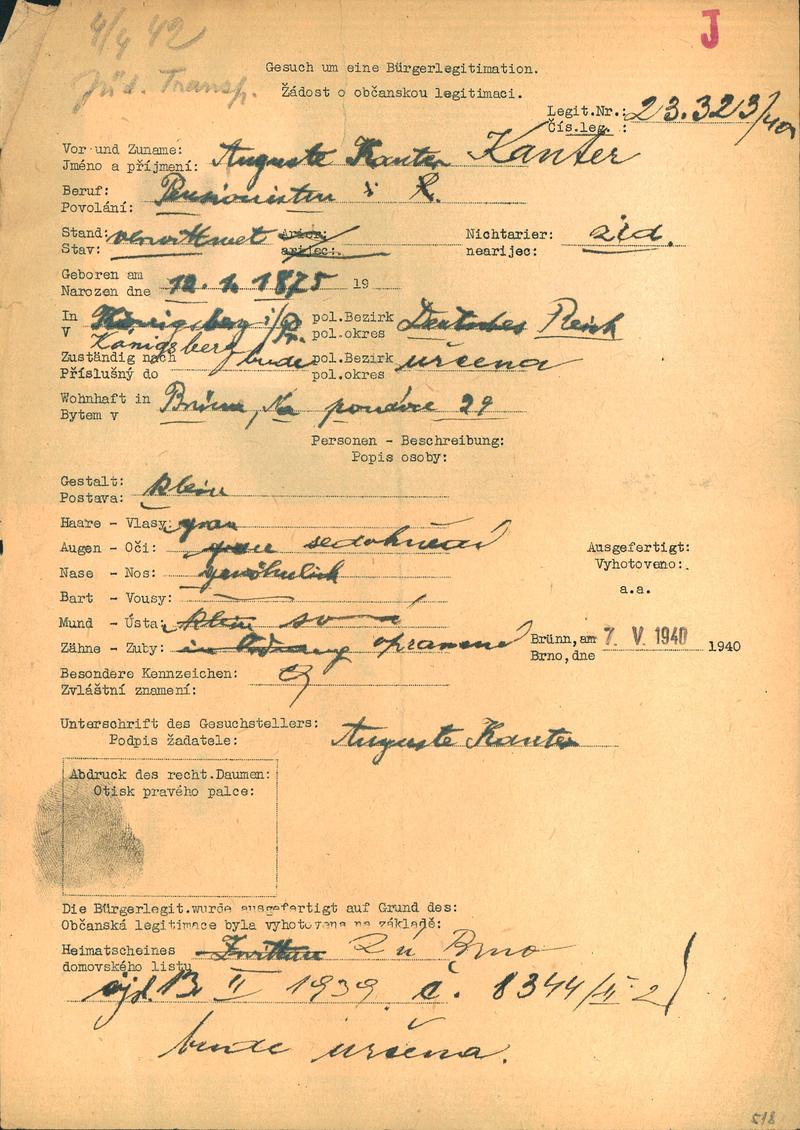 4/4 42
J
Jüd. Transp.
Gesuch um eine Bürgerlegitimation.
Žádost o občanskou legitimaci.
Legit.Nr.: 23.323/40
Čís.leg. :
Vor-und Zuname: Auguste Kanter Kanter
Jméno a příjmení:
Beruf: Pensionisten
Povolání:
Stand: verwittwet Arier: Nichtarier: žid.
Stav: arijec: nearijec:
Geboren am 10. 1. 1875 19
Narozen dne
In Königsberg i/Pr. pol.Bezirk Deutsches Reich
V Königsberg pol.okres
Zuständig nach bude pol.Bezirk určena
Příslušný do pol.okres
Wohnhaft in Brünn, Na ponávce 29
Bytem v
Personen - Beschreibung:
Popis osoby:
Gestalt: klein
Postava:
Haare - Vlasy: grau
Augen - Oči: grau sedohnědé
Nase - Nos: gewöhnlich
Bart - Vousy:
Mund - Ústa: klein
Zähne - Zuby: in Ordnung
Besondere Kennzeichen:
Zvláštní znamení:
Ausgefertigt:
Vyhotoveno:
a.a.
Brünn, am 7. V. 1940 1940
Brno, dne
Unterschrift des Gesuchstellers: Auguste Kanter
Podpis žadatele:
Abdruck des recht.Daumen:
Otisk pravého palce:
Die Bürgerlegit.wurde ausgefertigt auf Grund des:
Občanská legitimace byla vyhotovena na základě:
Heimatscheines Brno
domovského listu
13 II 1939 č. 8344/II-2
bude určena.
518